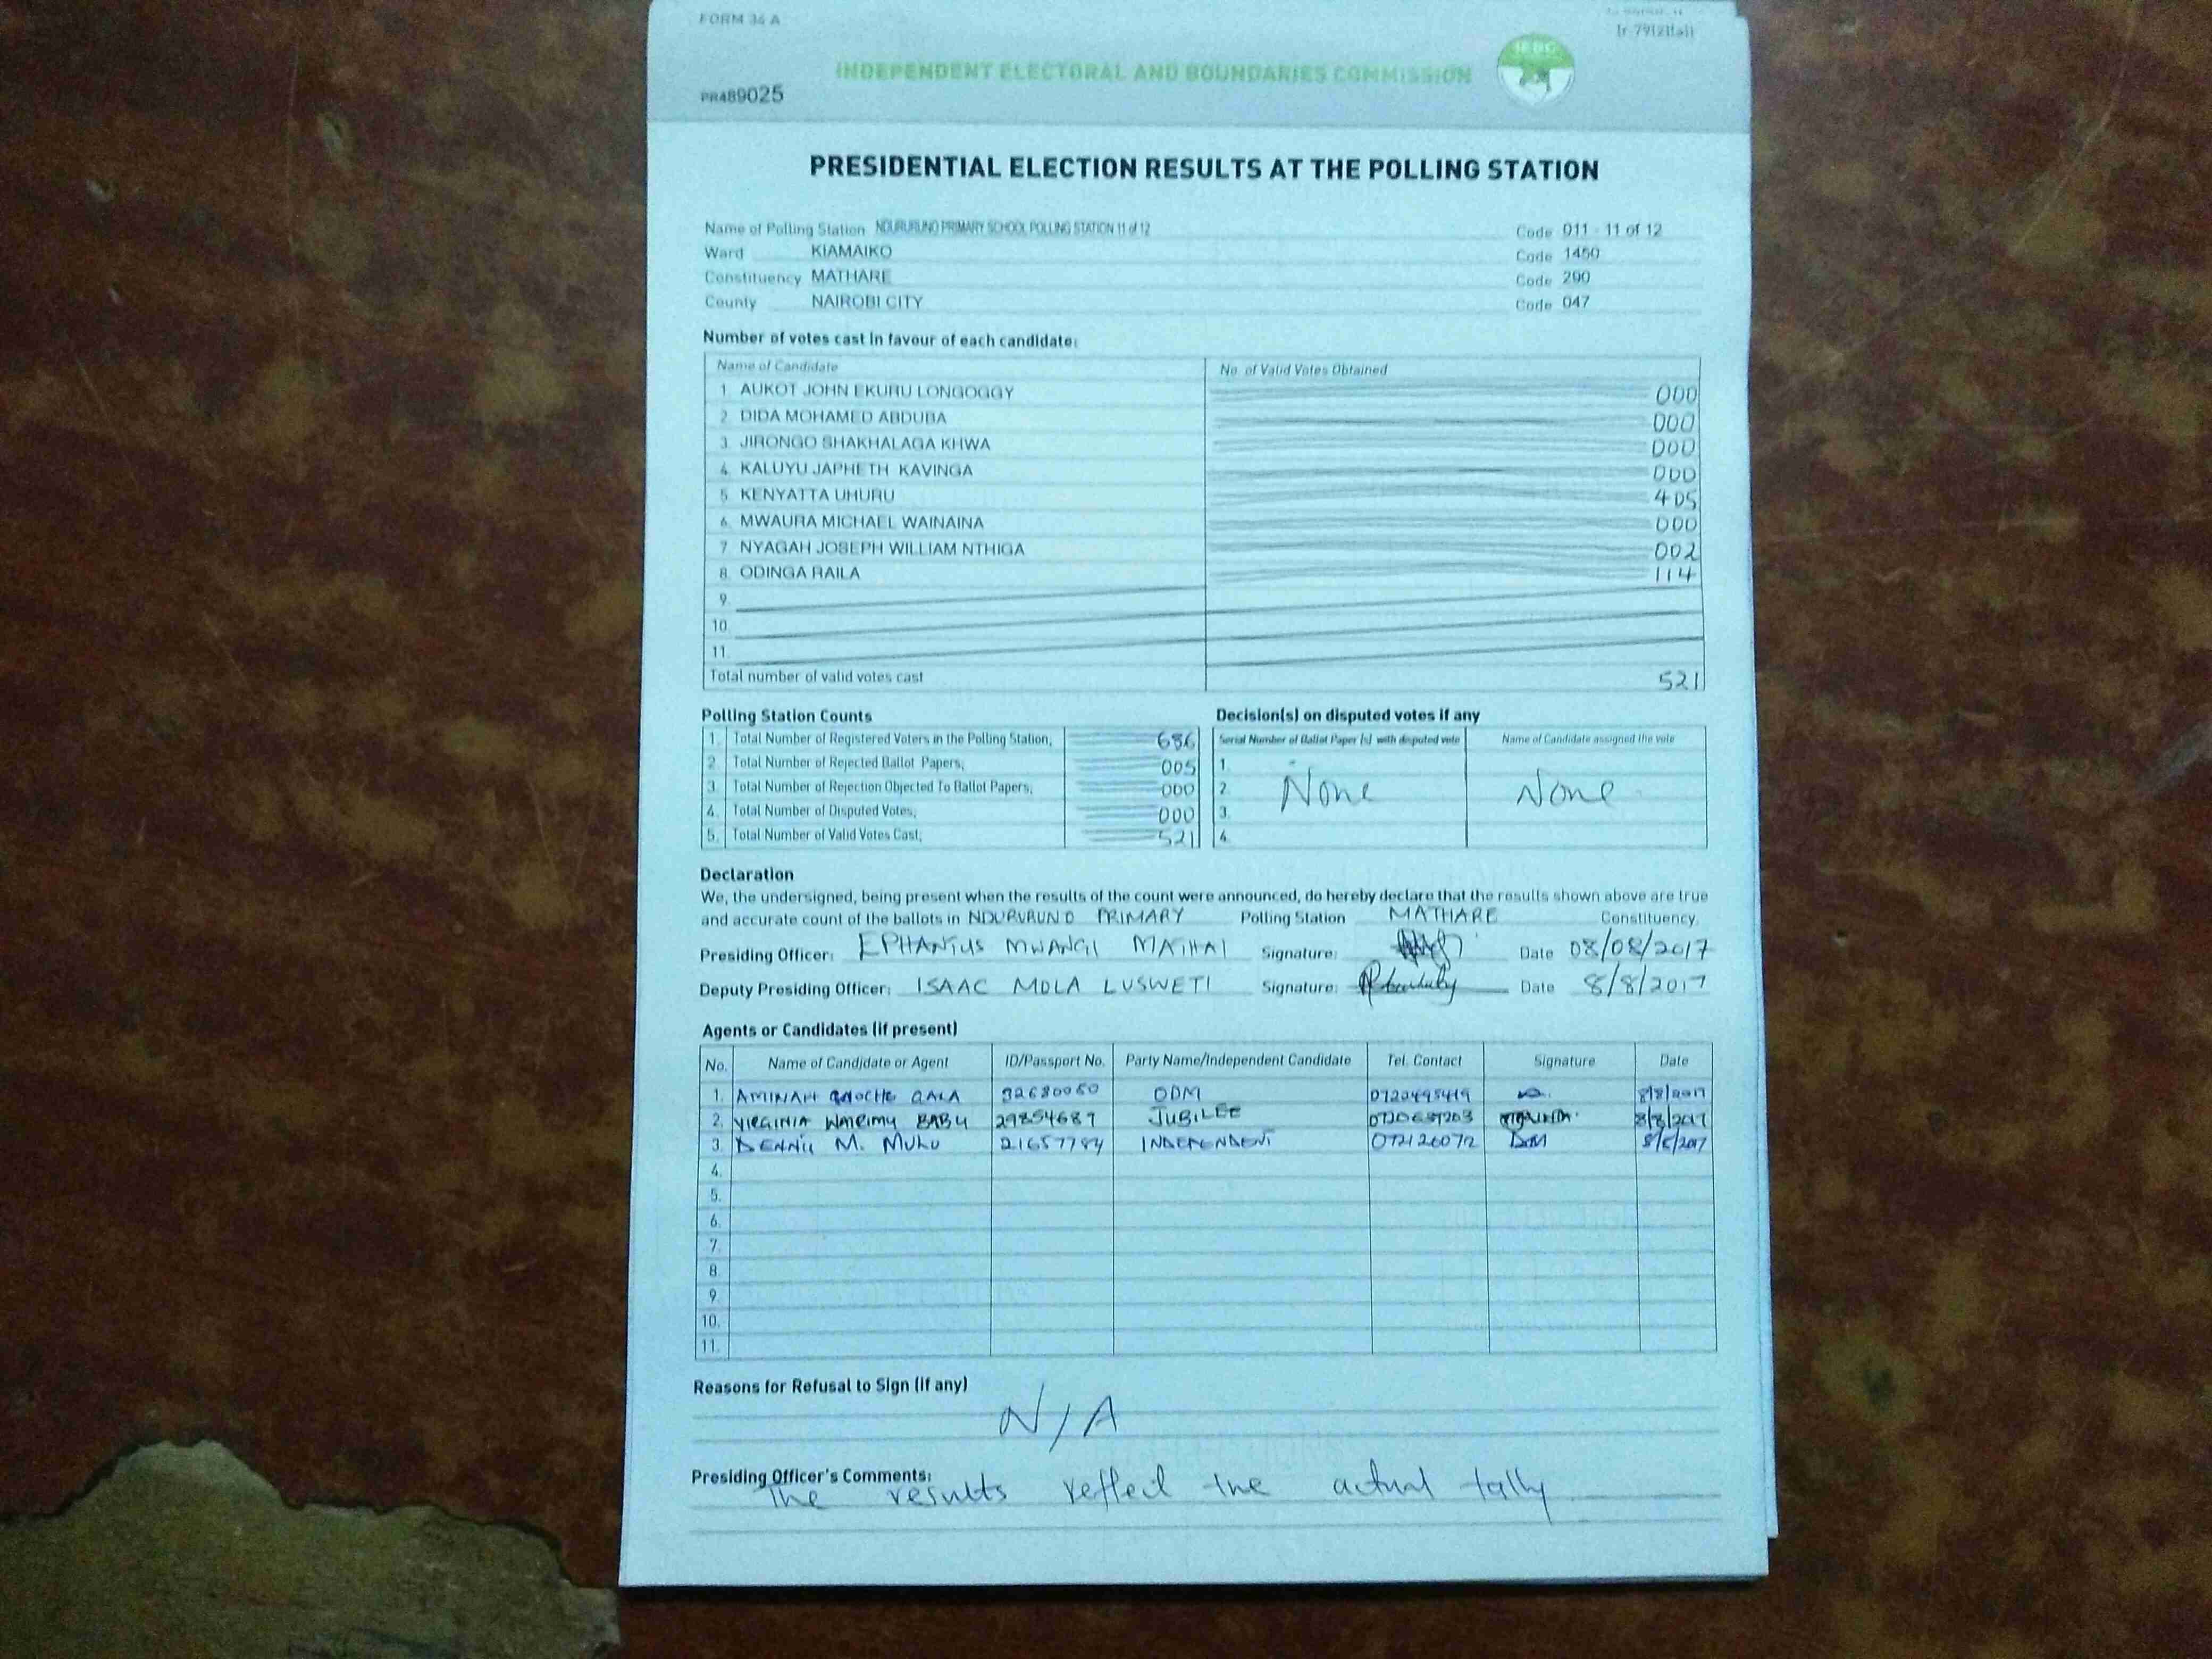 FORM 34 A
INDEPENDENT ELECTORAL AND BOUNDARIES COMMISSION
IEBC
PR489025
PRESIDENTIAL ELECTION RESULTS AT THE POLLING STATION
Name of Polling Station NDURURUNO PRIMARY SCHOOL POLLING STATION 11 of 12 Code 011 - 11 of 12
Ward KIAMAIKO Code 1450
Constituency MATHARE Code 290
County NAIROBI CITY Code 047
Number of votes cast in favour of each candidate:
Name of Candidate No. of Valid Votes Obtained
1 AUKOT JOHN EKURU LONGOGGY 000
2 DIDA MOHAMED ABDUBA 000
3 JIRONGO SHAKHALAGA KHWA 000
4 KALUYU JAPHETH KAVINGA 000
5 KENYATTA UHURU 405
6 MWAURA MICHAEL WAINAINA 000
7 NYAGAH JOSEPH WILLIAM NTHIGA 002
8 ODINGA RAILA 114
9
10
11
Total number of valid votes cast 521
Polling Station Counts
1. Total Number of Registered Voters in the Polling Station, 686
2. Total Number of Rejected Ballot Papers, 005
3. Total Number of Rejection Objected To Ballot Papers, 000
4. Total Number of Disputed Votes, 000
5. Total Number of Valid Votes Cast, 521
Decision(s) on disputed votes if any
Serial Number of Ballot Paper (s) with disputed vote Name of Candidate assigned the vote
1.
2. None None
3.
4.
Declaration
We, the undersigned, being present when the results of the count were announced, do hereby declare that the results shown above are true
and accurate count of the ballots in NDURURUNO PRIMARY Polling Station MATHARE Constituency.
Presiding Officer: EPHANTUS MWANGI MAIHAI Signature: Date 08/08/2017
Deputy Presiding Officer: ISAAC MOLA LUSWETI Signature: Date 8/8/2017
Agents or Candidates (if present)
No. Name of Candidate or Agent ID/Passport No. Party Name/Independent Candidate Tel. Contact Signature Date
1. AMINAH GALA ODM 0722495419 8/8/2017
2. VIRGINIA WAIRIMU BABU 29854689 JUBILEE 8/8/2017
3. DENNIS M. MULU 21657784 INDEPENDENT DM 8/8/2017
4.
5.
6.
7.
8.
9.
10.
11.
Reasons for Refusal to Sign (if any)
N/A
Presiding Officer's Comments:
The results reflect the actual tally